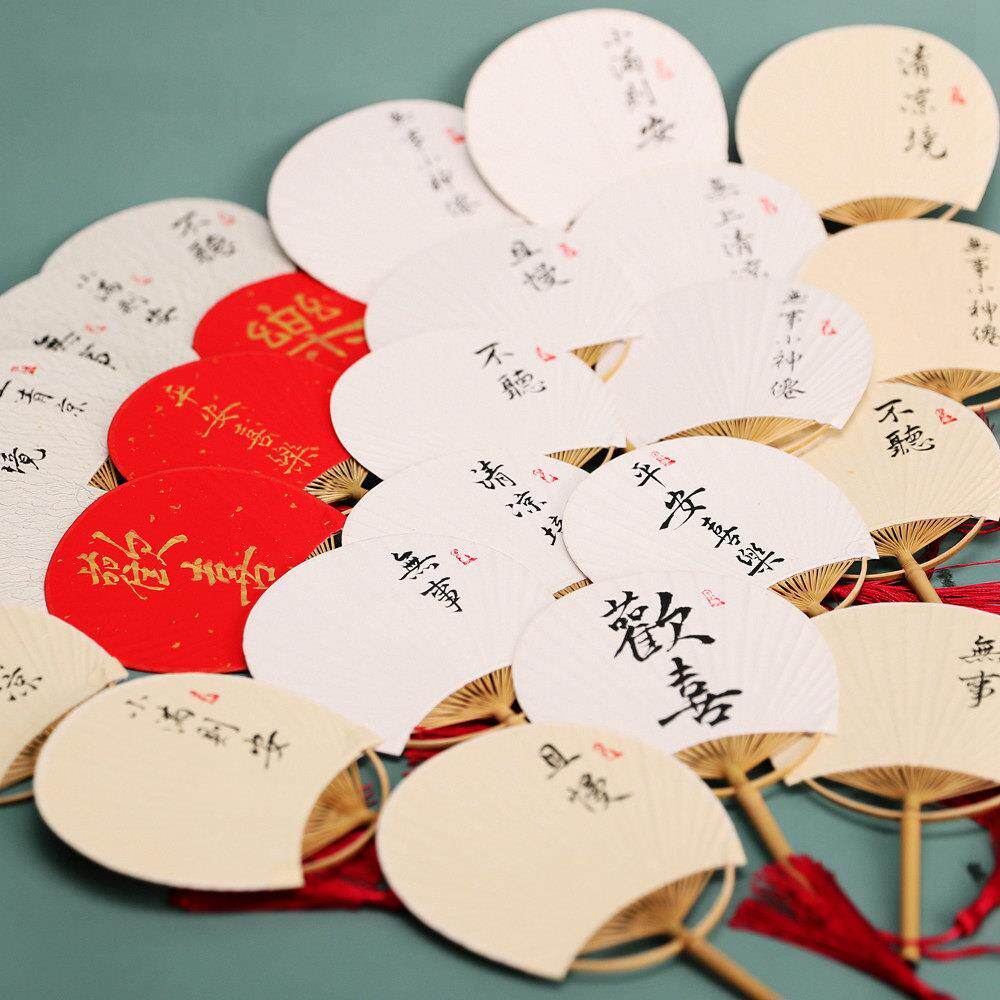 小滿則安
清凉境
無事小神僊
不聽
無上清凉
且慢
無事小神僊
小滿則安
無事小神僊
不聽
不聽
平安喜樂
清凉境
平安喜樂
歡喜
無事
歡喜
無事
小滿則安
且慢